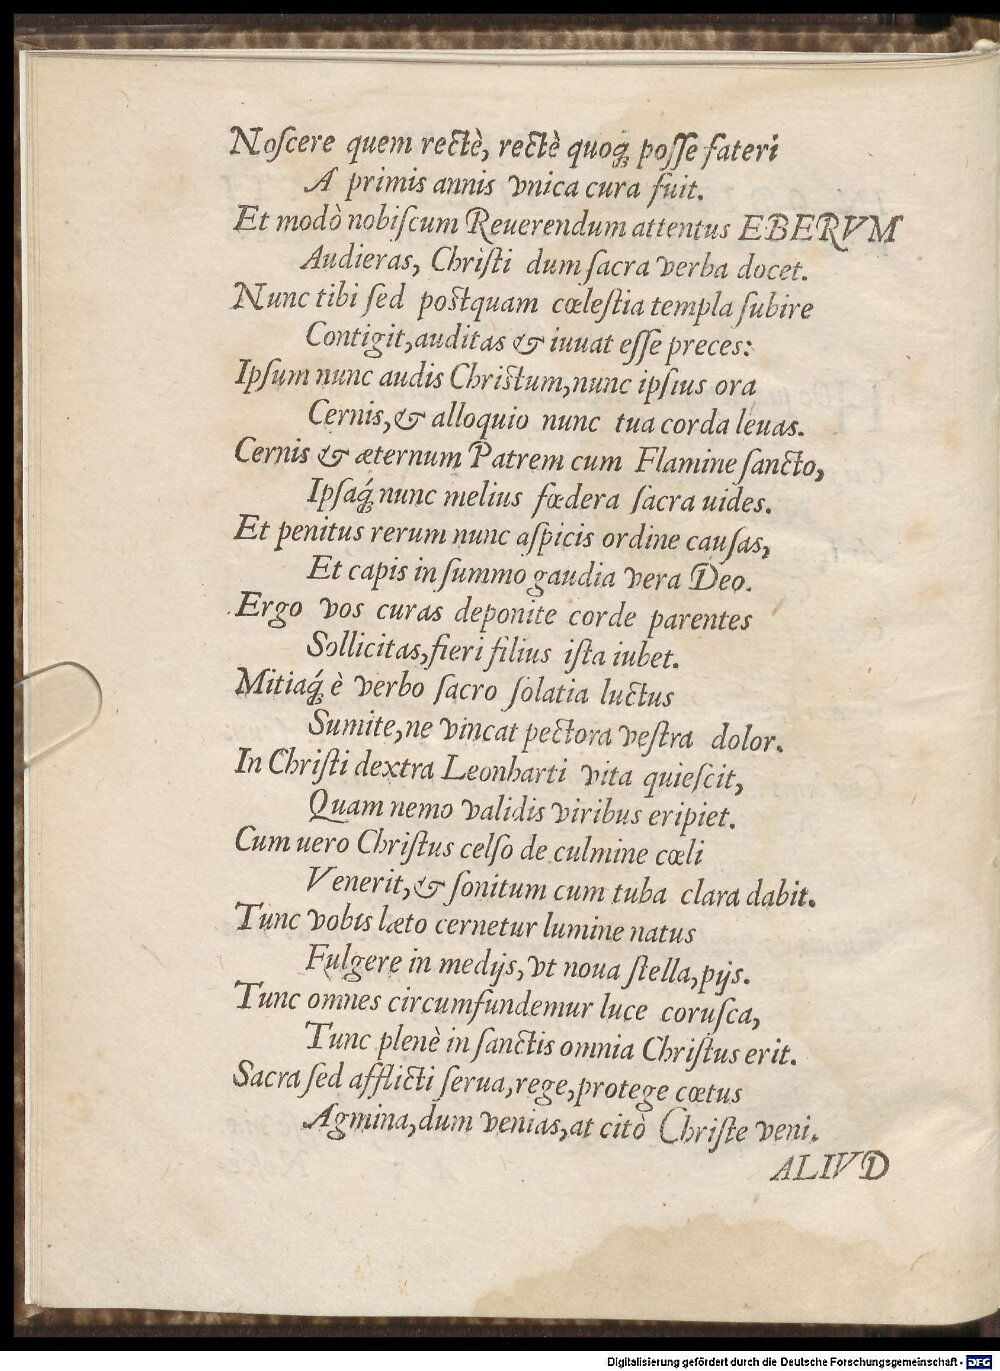 Noſcere quem rectè, rectè quoq́; poſſe fateri
A primis annis vnica cura fuit.
Et modò nobiſcum Reuerendum attentus EBERVM
Audieras, Chriſti dum ſacra verba docet.
Nunc tibi ſed poſtquam cœleſtia templa ſubire
Contigit, auditas & iuuat eſſe preces:
Ipſum nunc audis Chriſtum, nunc ipſius ora
Cernis, & alloquio nunc tua corda leuas.
Cernis & æternum Patrem cum Flamine ſancto,
Ipſaq́; nunc melius fœdera ſacra uides.
Et penitus rerum nunc aſpicis ordine cauſas,
Et capis in ſummo gaudia vera Deo.
Ergo vos curas deponite corde parentes
Sollicitas, fieri filius iſta iubet.
Mitiaq́; è verbo ſacro ſolatia luctus
Sumite, ne vincat pectora veſtra dolor.
In Chriſti dextra Leonharti vita quieſcit,
Quam nemo validis viribus eripiet.
Cum uero Chriſtus celſo de culmine cœli
Venerit, & ſonitum cum tuba clara dabit.
Tunc vobis læto cernetur lumine natus
Fulgere in medijs, vt noua ſtella, pijs.
Tunc omnes circumfundemur luce coruſca,
Tunc plenè in ſanctis omnia Chriſtus erit.
Sacra ſed afflicti ſerua, rege, protege cœtus
Agmina, dum venias, at citò Chriſte veni.
ALIVD
Digitalisierung gefördert durch die Deutsche Forschungsgemeinschaft - DFG